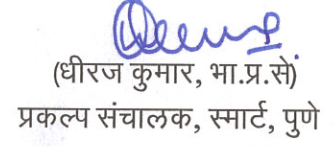 (धीरज कुमार, भा.प्र.से)
प्रकल्प संचालक, स्मार्ट, पुणे